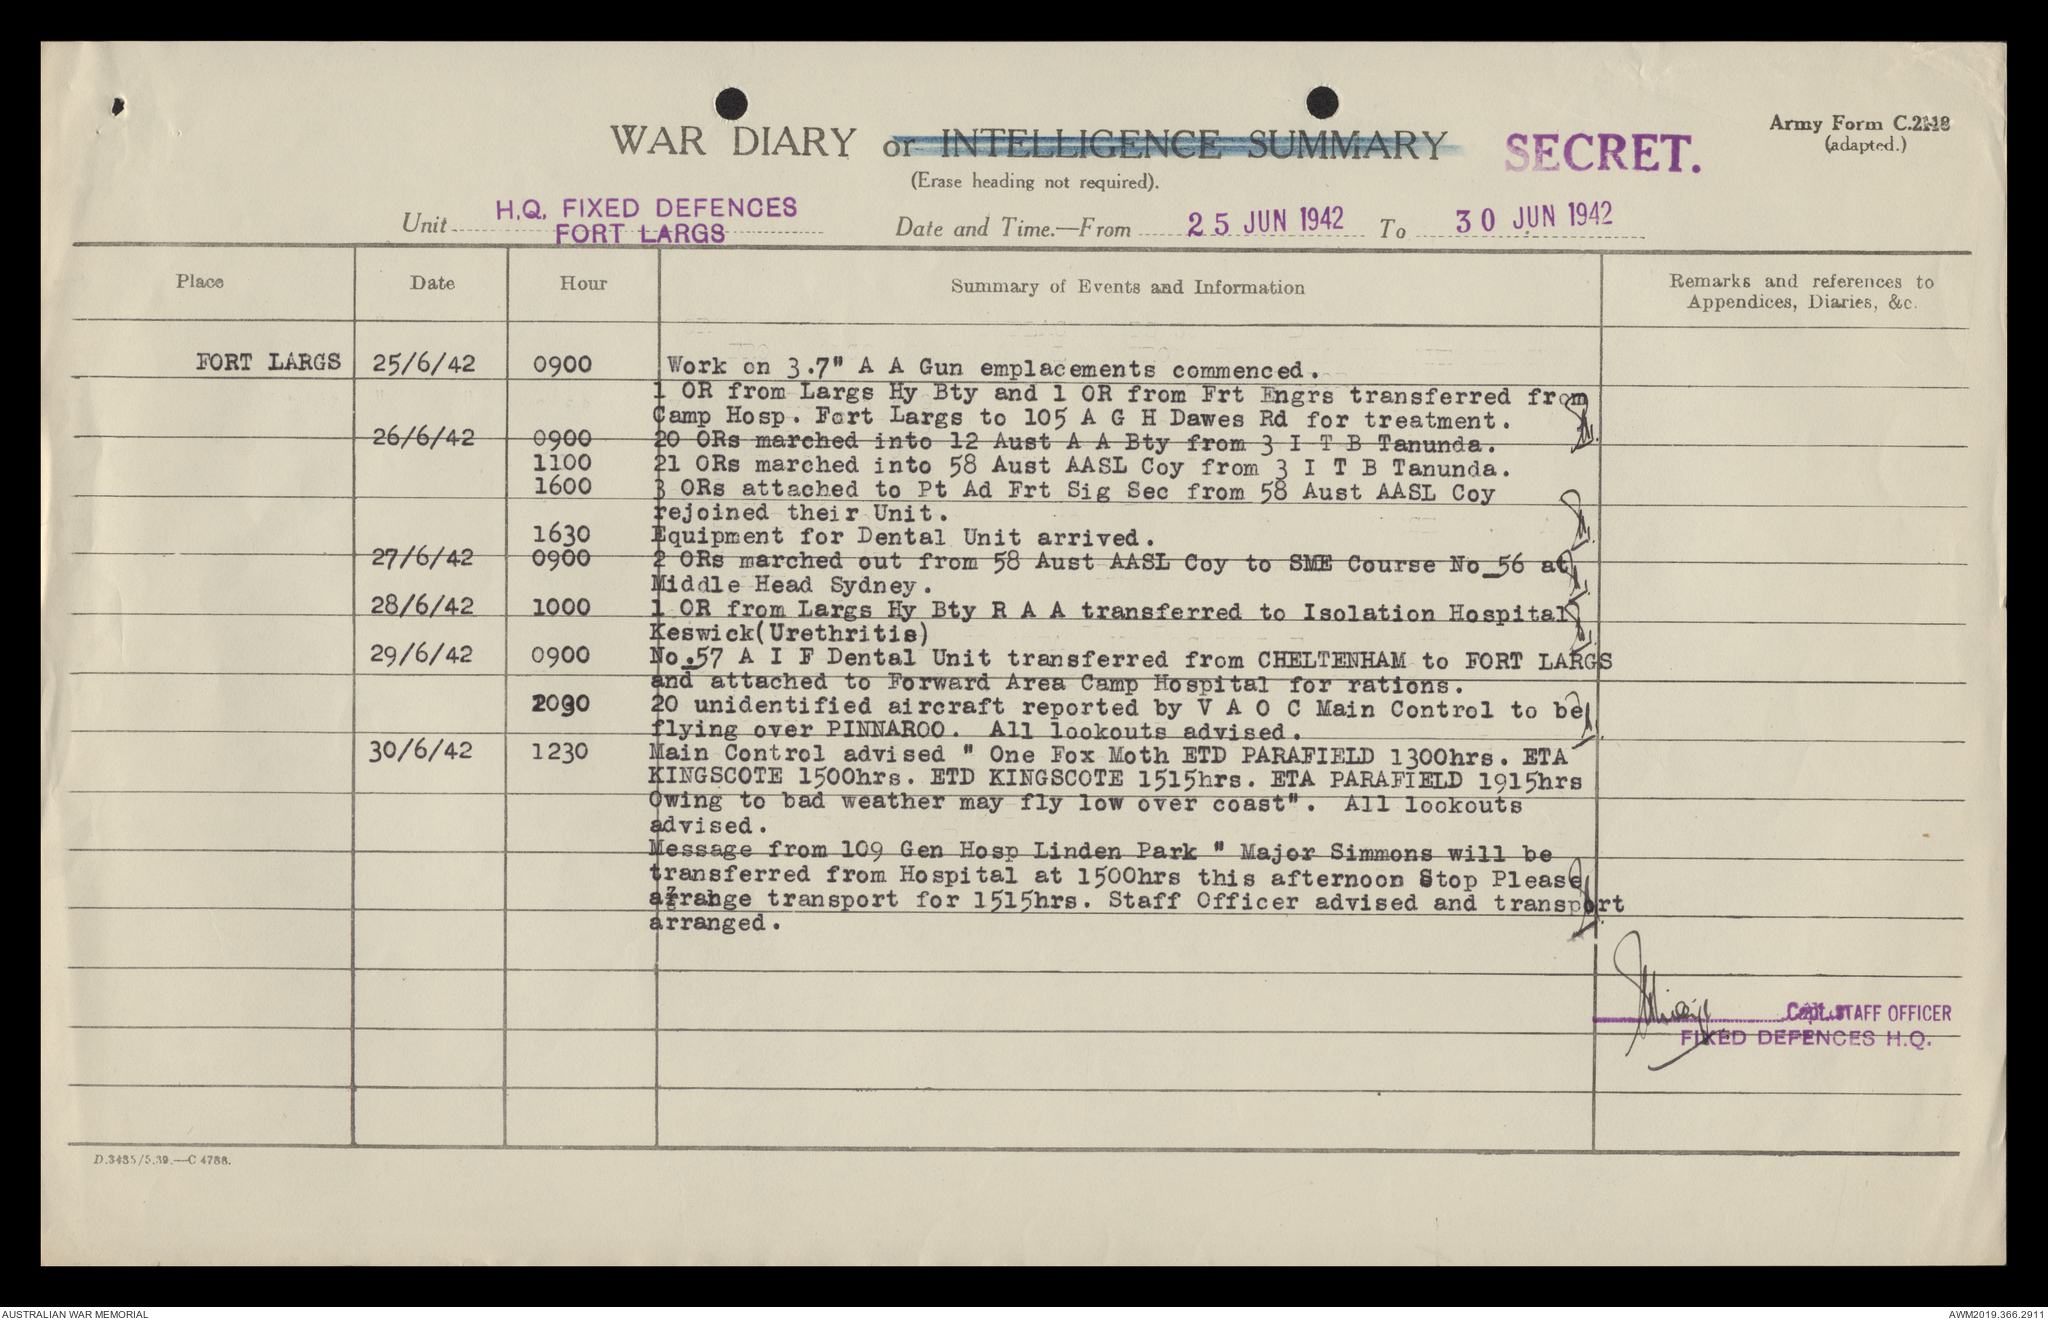 WAR DIARY or INTELLIGENCE SUMMARY
SECRET.
Army Form C.2118
(adapted.)
(Erase heading not required).
Unit H.Q. FIXED DEFENCES
FORT LARGS
Date and Time.—From 25 JUN 1942 To 30 JUN 1942
Place Date Hour Summary of Events and Information Remarks and references to
Appendices, Diaries, &c.
FORT LARGS 25/6/42 0900 Work on 3.7" A A Gun emplacements commenced.
1 OR from Largs Hy Bty and 1 OR from Frt Engrs transferred from
Camp Hosp. Fort Largs to 105 A G H Dawes Rd for treatment.
26/6/42 0900 20 ORs marched into 12 Aust A A Bty from 3 I T B Tanunda.
1100 21 ORs marched into 58 Aust AASL Coy from 3 I T B Tanunda.
1600 3 ORs attached to Pt Ad Frt Sig Sec from 58 Aust AASL Coy
rejoined their Unit.
1630 Equipment for Dental Unit arrived.
27/6/42 0900 2 ORs marched out from 58 Aust AASL Coy to SME Course No 56 at
Middle Head Sydney.
28/6/42 1000 1 OR from Largs Hy Bty R A A transferred to Isolation Hospital
Keswick(Urethritis)
29/6/42 0900 No.57 A I F Dental Unit transferred from CHELTENHAM to FORT LARGS
and attached to Forward Area Camp Hospital for rations.
20 unidentified aircraft reported by V A O C Main Control to be
flying over PINNAROO. All lookouts advised.
30/6/42 1230 Main Control advised " One Fox Moth ETD PARAFIELD 1300hrs. ETA
KINGSCOTE 1500hrs. ETD KINGSCOTE 1515hrs. ETA PARAFIELD 1915hrs
Owing to bad weather may fly low over coast". All lookouts
advised.
Message from 109 Gen Hosp Linden Park " Major Simmons will be
transferred from Hospital at 1500hrs this afternoon Stop Please
arrange transport for 1515hrs. Staff Officer advised and transport
arranged.
Capt. STAFF OFFICER
FIXED DEFENCES H.Q.
D.3435/5.39.—C 4788.
AUSTRALIAN WAR MEMORIAL
AWM2019.366.2911